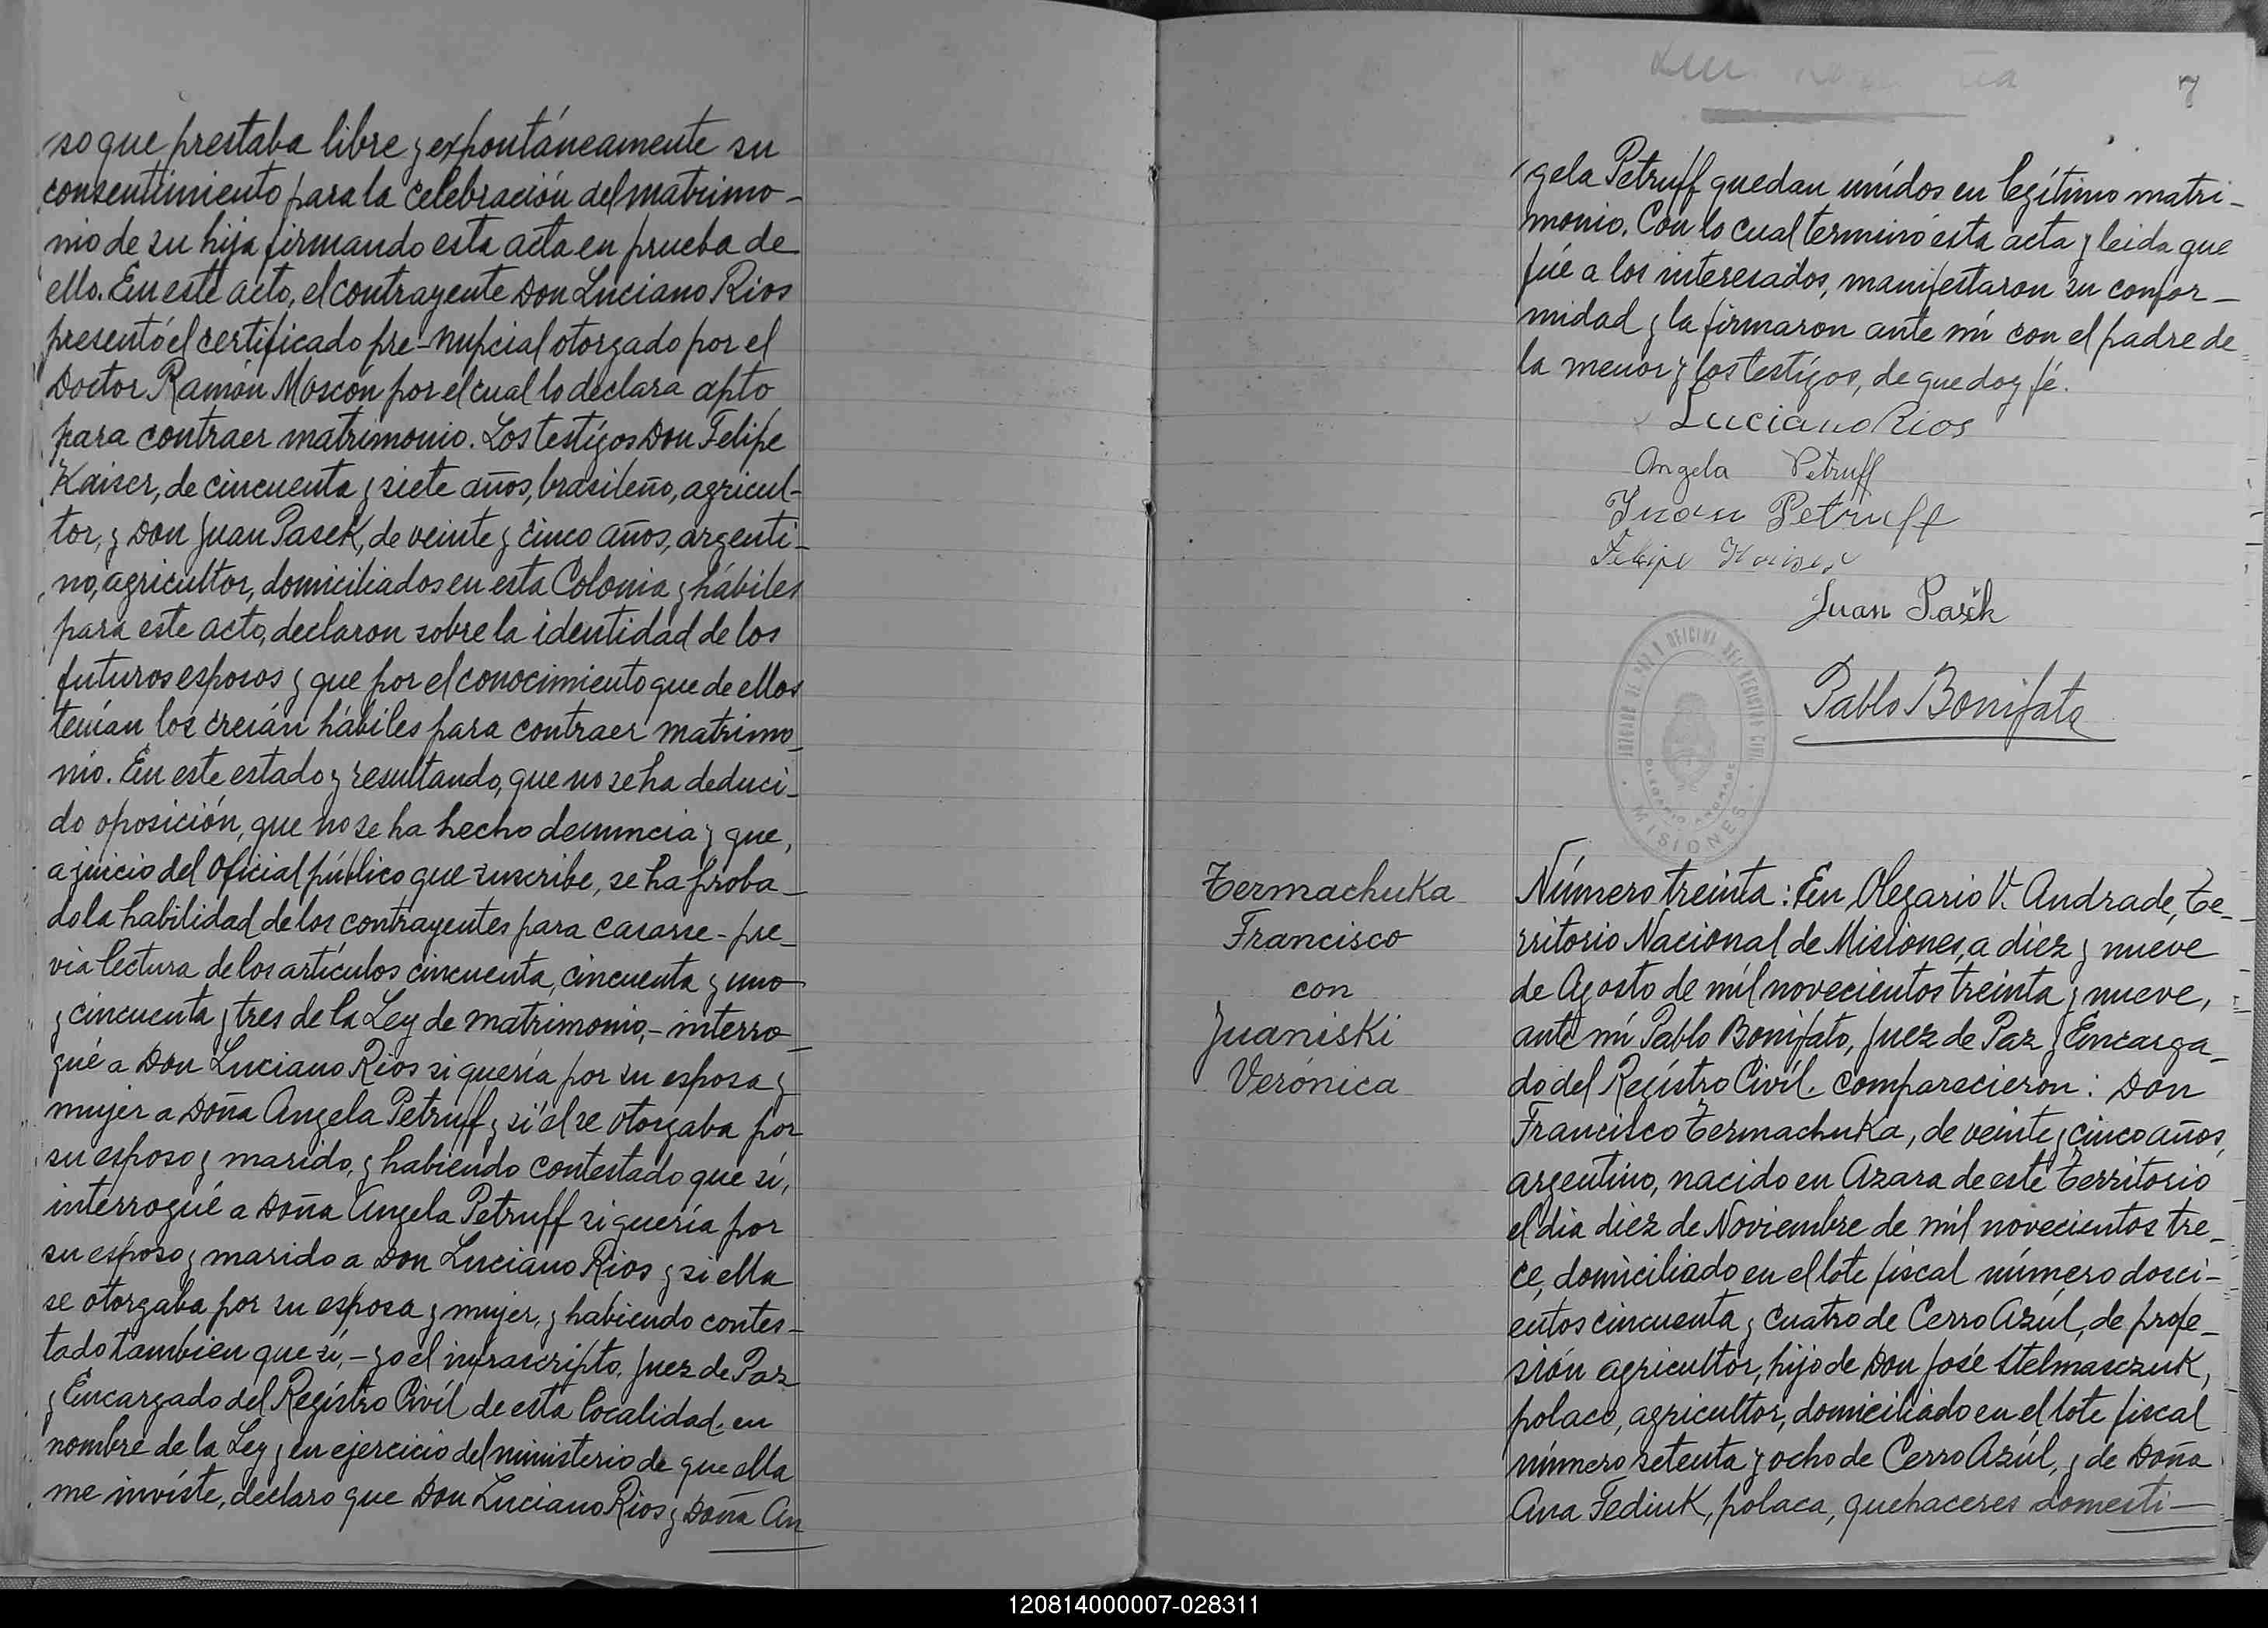 so que prestaba libre y expontáneamente su
consentimiento para la celebración del matrimo-
nio de su hija firmando esta acta en prueba de
ello. En este acto, el contrayente Don Luciano Rios
presentó el certificado pre-nupcial otorgado por el
Doctor Ramón Moscón por el cual lo declara apto
para contraer matrimonio. Los testígos Don Felipe
Kaiser, de cincuenta y siete años, brasileño, agricul-
tor, y Don Juan Pasek, de veinte y cinco años, argenti-
no, agricultor, domiciliados en esta Colonia y hábiles
para este acto, declaron sobre la identidad de los
futuros esposos y que por el conocimiento que de ellos
tenían los creían hábiles para contraer matrimo-
nio. En este estado y resultando, que no se ha deduci-
do oposición, que no se ha hecho denuncia y que,
a juicio del Oficial público que suscribe, se ha proba-
do la habilidad de los contrayentes para casarse - pre-
via lectura de los artículos cincuenta, cincuenta y uno
y cincuenta y tres de la Ley de matrimonio, - interro-
gué a Don Luciano Rios si quería por su esposa y
mujer a Doña Angela Petruff y si él se otorgaba por
su esposo y marido, y habiendo contestado que sí,
interrogué a Doña Angela Petruff si quería por
su esposo y marido a Don Luciano Rios y si ella
se otorgaba por su esposa y mujer, y habiendo contes-
tado tambien que sí, - yo el infrascripto, Juez de Paz
y Encargado del Regístro Civíl de esta localidad, en
nombre de la Ley y en ejercicio del ministerio de que ella
me invíste, declaro que Don Luciano Rios y Doña An
7
gela Petruff quedan unídos en legítimo matri-
monio. Con lo cual terminó esta acta y leida que
fué a los interesados, manifestaron su confor-
midad y la firmaron ante mí con el padre de
la menor y los testígos, de que doy fé.
Luciano Rios
Angela Petruff
Juan Petruff
Felipe Kaiser
Juan Pasek
JUZGADO DE PAZ Y OFICINA DEL REGISTRO CIVIL
OLEGARIO V. ANDRADE
MISIONES
Pablo Bonifato
Termachuka
Francisco
con
Juaniski
Verónica
Número treinta: En Olegario V. Andrade, Te-
rritorio Nacional de Misiones, a diez y nueve
de Agosto de mil novecientos treinta y nueve,
ante mí Pablo Bonifato, Juez de Paz y Encarga-
do del Regístro Civíl. comparecieron: Don
Francisco Termachuka, de veinte y cinco años,
argentino, nacido en Azara de este Territorio
el dia diez de Noviembre de mil novecientos tre-
ce, domiciliado en el lote fiscal número dosci-
entos cincuenta y cuatro de Cerro Azúl, de profe-
sión agricultor, hijo de Don José Stelmasczuk,
polaco, agricultor, domiciliado en el lote fiscal
número setenta y ocho de Cerro Azúl, y de Doña
Ana Fediuk, polaca, quehaceres domesti-
120814000007-028311